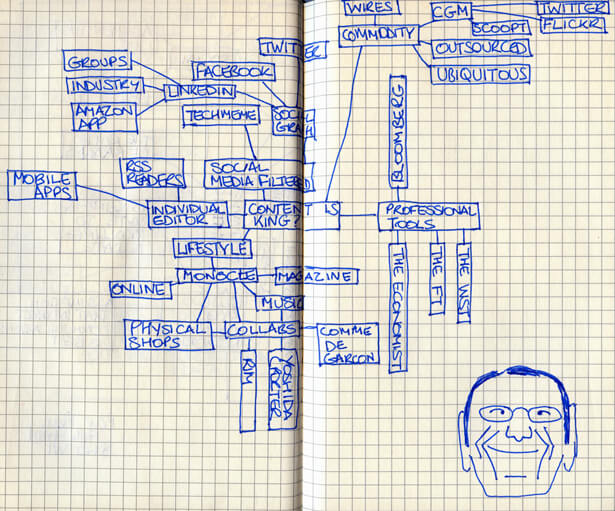 WIRES
CGM
TWITTER
FLICKR
SCOOPT
COMMODITY
OUTSOURCED
UBIQUITOUS
TWITTER
GROUPS
FACEBOOK
INDUSTRY
LINKEDIN
AMAZON
APP
TECHMEME
SOCIAL
GRAPH
BLOOMBERG
RSS
READERS
SOCIAL
MEDIA FILTERED
MOBILE
APPS
INDIVIDUAL
EDITOR
CONTENT IS
KING?
PROFESSIONAL
TOOLS
LIFESTYLE
MONOCLE
MAGAZINE
ONLINE
MUSIC
THE ECONOMIST
THE FT
THE WSJ
PHYSICAL
SHOPS
COLLABS
COMME
DE
GARCON
YOSHIDA